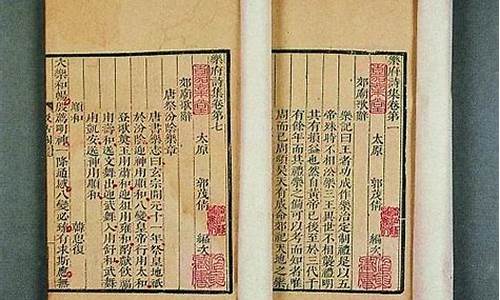 樂府詩集卷第一
太原 郭茂倩 編次
郊廟歌辭
樂記曰王者功成作樂治定制禮是以五
帝殊時不相沿樂三王異世不相襲禮明
其有損益也然自黃帝已後至於三代千
有餘年而其禮樂之備可以考而知者唯
周而已周頌昊天有成命郊祀天地之樂
樂府詩集卷第七
太原 郭茂倩 編次
郊廟歌辭
唐祭汾陰樂章
唐書樂志曰玄宗開元十一年祭皇地祇
於汾陰降神用順和八變皇帝行用太和
登歌奠玉帛用肅和迎俎用雍和酌獻飲福
用壽和送文舞出迎武舞入用舒和武舞
用凱安送神用順和
順和 韓思復
大樂和暢殷薦明神一降通感八變必臻有求斯應無